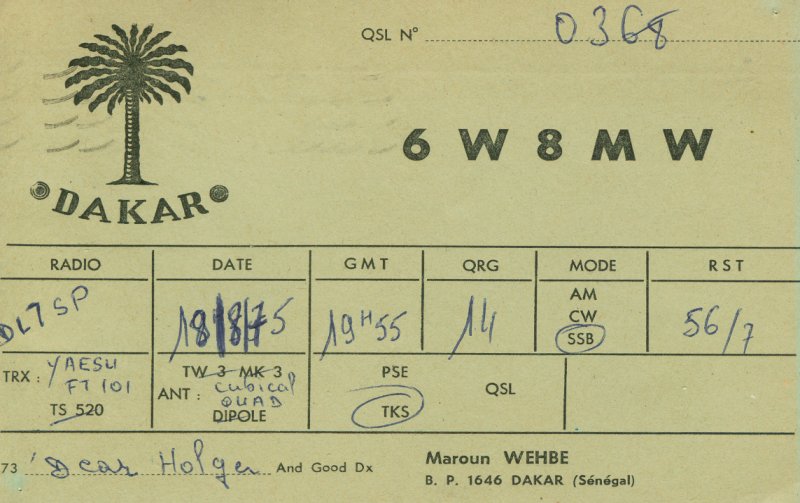 QSL N° 0368
6W8MW
DAKAR
RADIO DATE GMT QRG MODE RST
DL7SP 18/8/75 19H55 14 AM CW SSB 56/7
TRX : YAESU FT 101 TS 520
TW 3 MK 3
ANT : cubical QUAD
DIPOLE
PSE
TKS
QSL
73 Dear Holger And Good Dx
Maroun WEHBE
B. P. 1646 DAKAR (Sénégal)